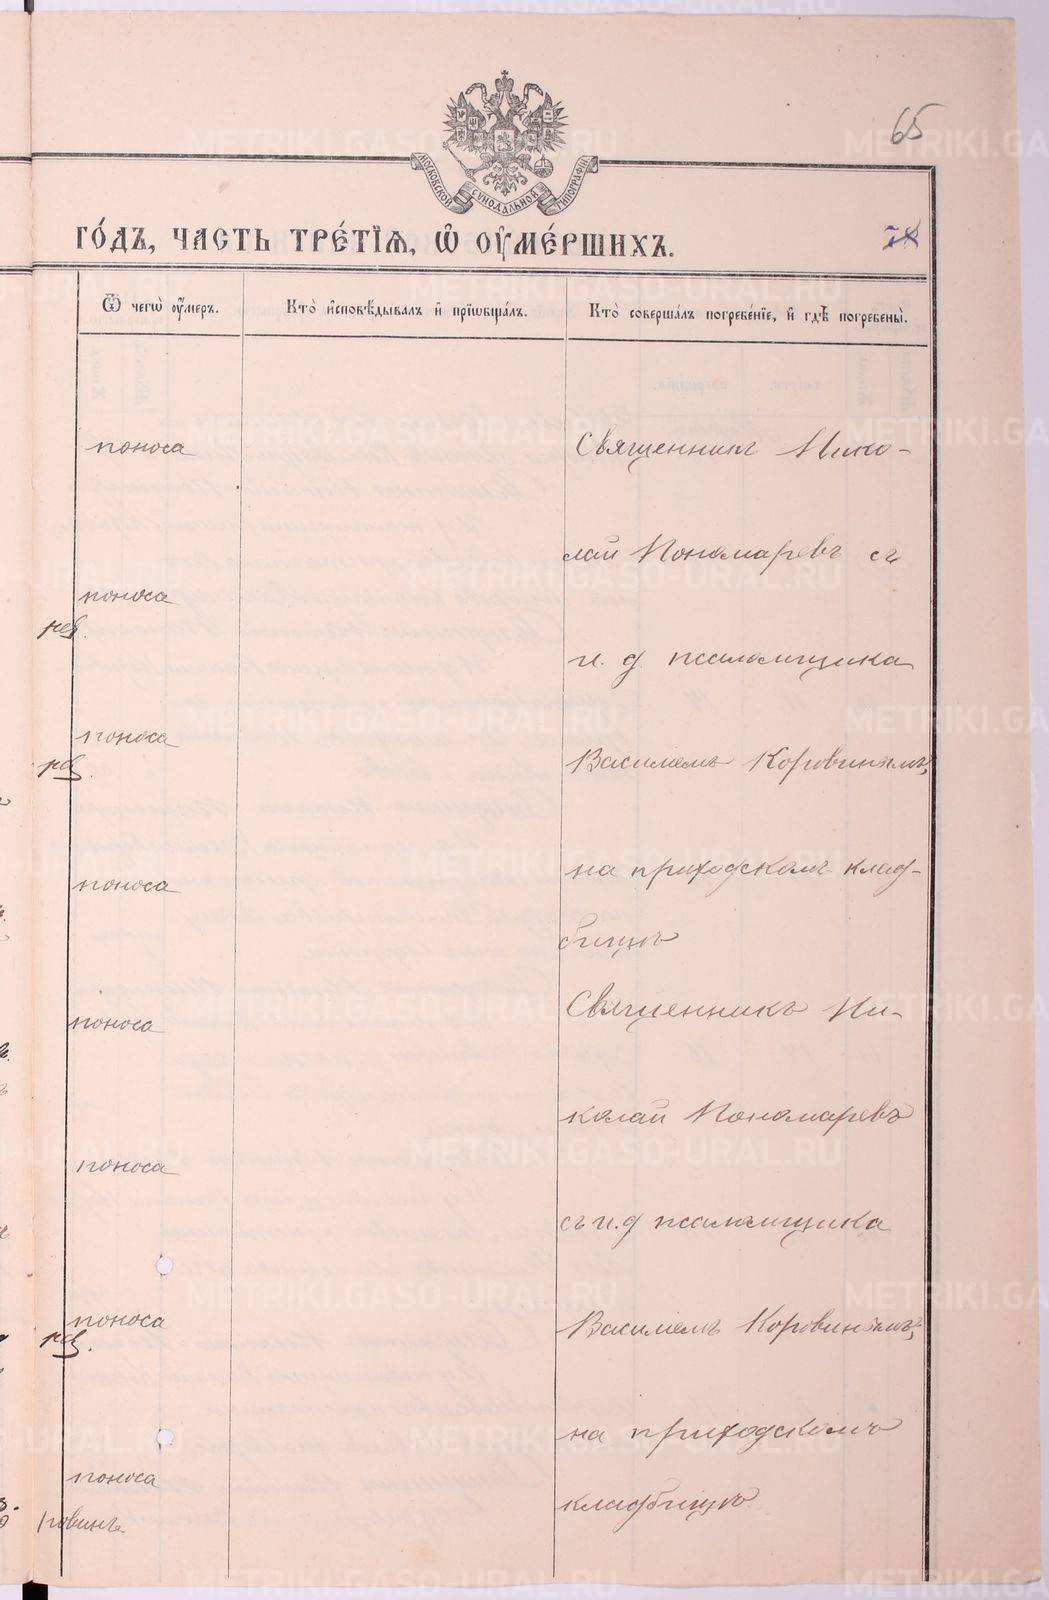 65
МОСКОВСКОЙ СУНОДАЛЬНОЙ ТИПОГРАФІИ
ГО́ДЪ, ЧАСТЬ ТРЕ́ТІѦ, Ѡ҆ ОУ҆МЕ́РШИХЪ.
Ѿ чегѡ̀ оу҆́меръ.
Кто̀ и҆сповѣ́дывалъ и҆ прїѡбща́лъ.
Кто̀ соверша́лъ погребе́нїе, и҆ гдѣ̀ погребены̀.
поноса
Священникъ Нико-
лай Пономаревъ съ
поноса
рев.
и. д. псаломщика
поноса
рев.
Василіемъ Коровинымъ,
на приходскомъ клад-
поноса
бищѣ
Священникъ Ни-
поноса
колай Пономаревъ
поноса
съ и. д псаломщика
поноса
рев.
Василіемъ Коровинымъ,
на приходскомъ
поноса
кладбищѣ
ровинъ
METRIKI.GASO-URAL.RU